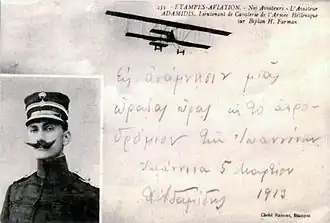 432 - ETAMPES-AVIATION. - Nos Aviateurs - L'Aviateur
ADAMIDIS, Lieutenant de Cavalerie de l'Armée Hellénique
sur Biplan H. Farman
Εἰς ἀνάμνησιν μιᾶς
ὡραίας ὥρας εἰς τὸ ἀερο-
δρόμιον τῶν Ἰωαννίνων
Ἰωάννινα 5 Μαρτίου
1913
Ἀδαμίδης
Cliché Rameau, Etampes